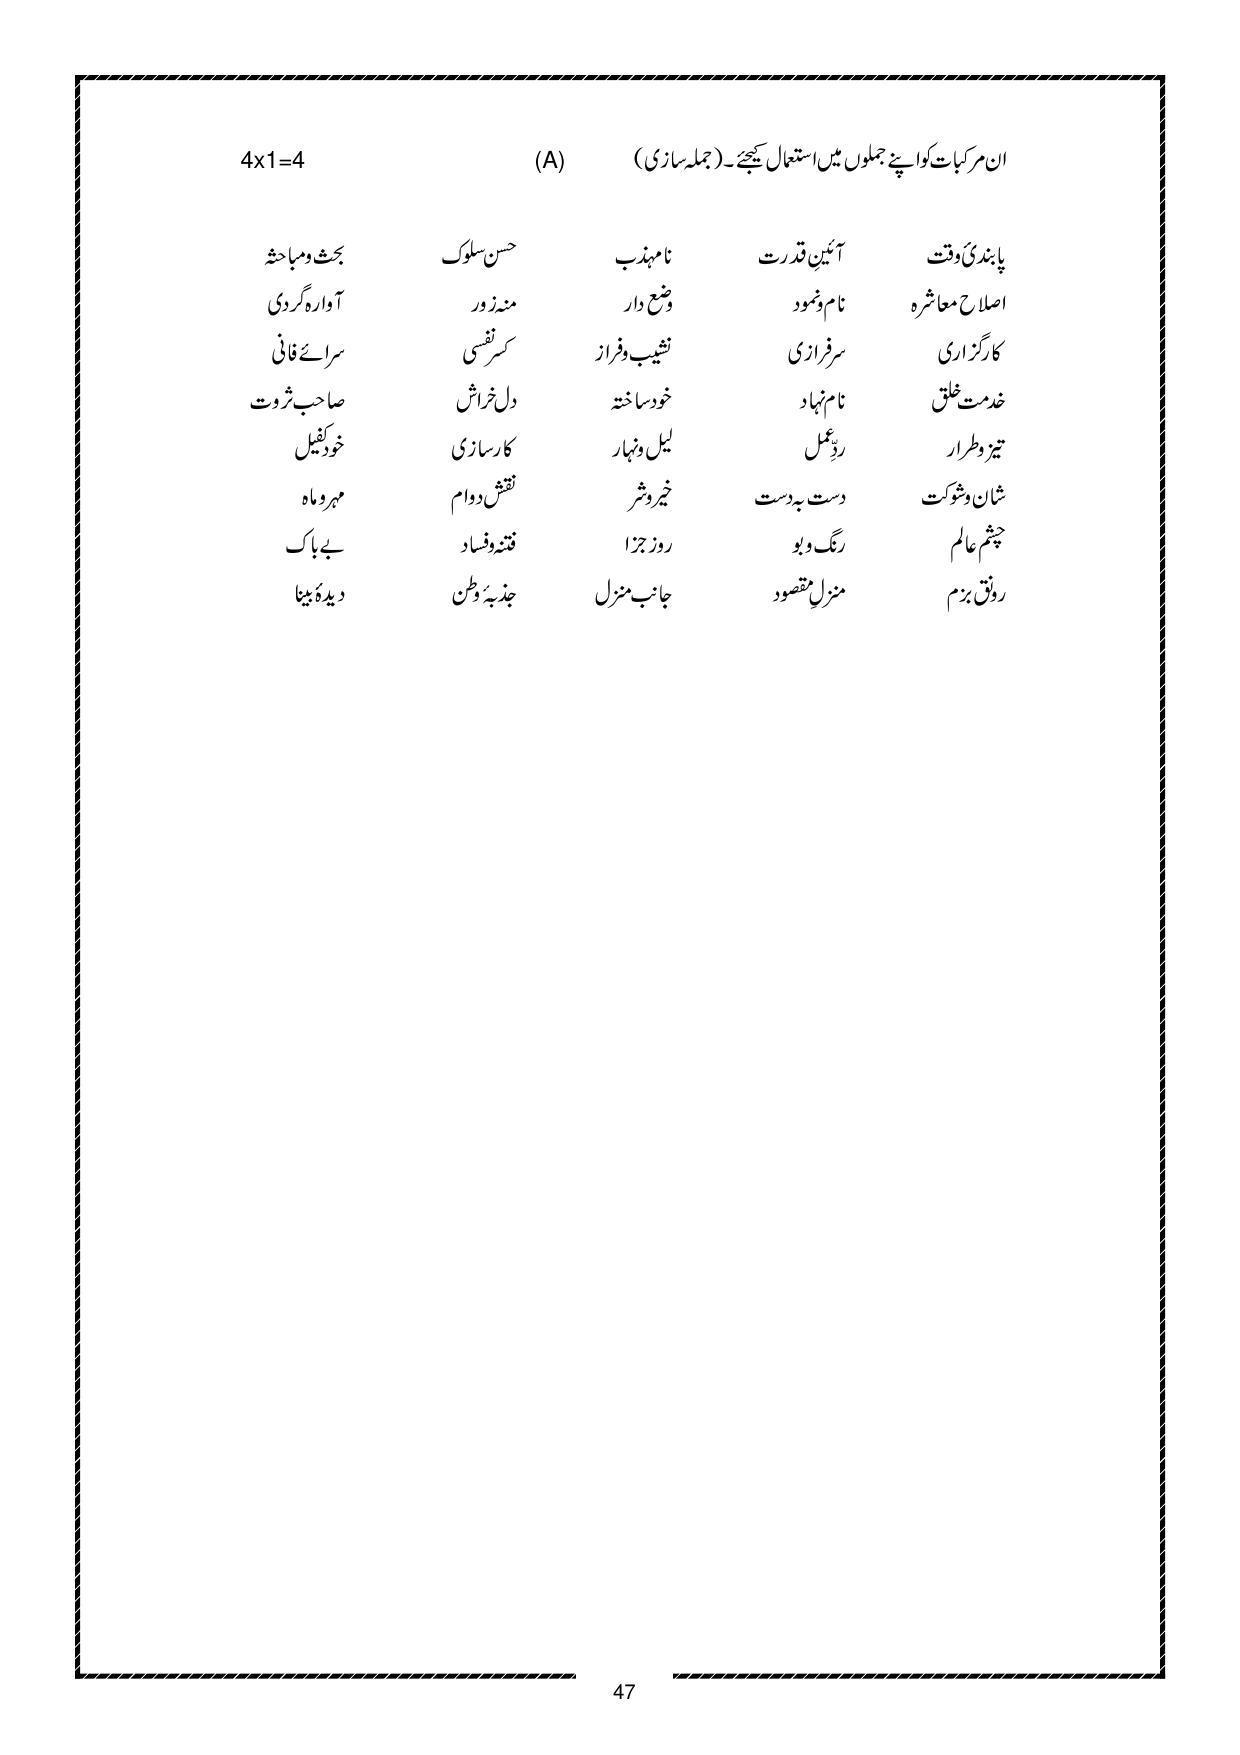 ان مرکبات کو اپنے جملوں میں استعمال کیجئے۔ (جملہ سازی) (A) 4x1=4
پابندیٔ وقت آئینِ قدرت نا مہذب حسن سلوک بحث و مباحثہ
اصلاح معاشرہ نام و نمود وضع دار منہ زور آوارہ گردی
کارگزاری سرفرازی نشیب و فراز کسر نفسی سرائے فانی
خدمت خلق نام نہاد خود ساختہ دل خراش صاحب ثروت
تیز و طرار ردِّ عمل لیل و نہار کارسازی خود کفیل
شان و شوکت دست بہ دست خیر و شر نقش دوام مہر و ماہ
چشم عالم رنگ و بو روز جزا فتنہ و فساد بے باک
رونق بزم منزلِ مقصود جانب منزل جذبۂ وطن دیدۂ بینا
47